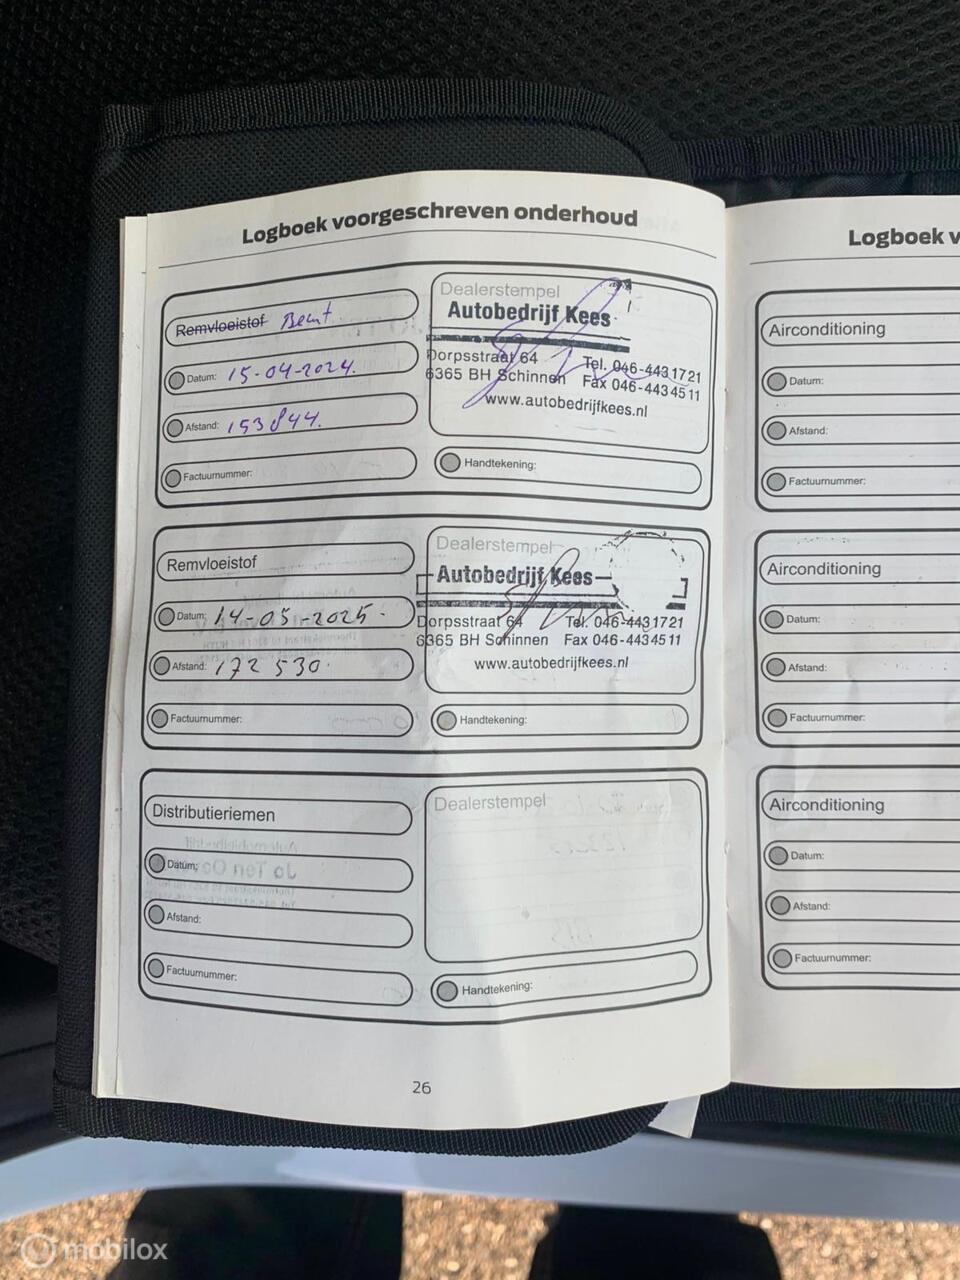 Logboek voorgeschreven onderhoud
Remvloeistof Beurt
Datum: 15-04-2024.
Afstand: 153844.
Factuurnummer:
Dealerstempel
Autobedrijf Kees
Dorpsstraat 64 Tel. 046-4431721
6365 BH Schinnen Fax 046-4434511
www.autobedrijfkees.nl
Handtekening:
Remvloeistof
Datum: 14-05-2025.
Afstand: 172 530.
Factuurnummer:
Dealerstempel
Autobedrijf Kees
Dorpsstraat 64 Tel. 046-4431721
6365 BH Schinnen Fax 046-4434511
www.autobedrijfkees.nl
Handtekening:
Distributieriemen
Datum:
Afstand:
Factuurnummer:
Dealerstempel
Handtekening:
26
Logboek v
Airconditioning
Datum:
Afstand:
Factuurnummer:
Airconditioning
Datum:
Afstand:
Factuurnummer:
Airconditioning
Datum:
Afstand:
Factuurnummer:
mobilox